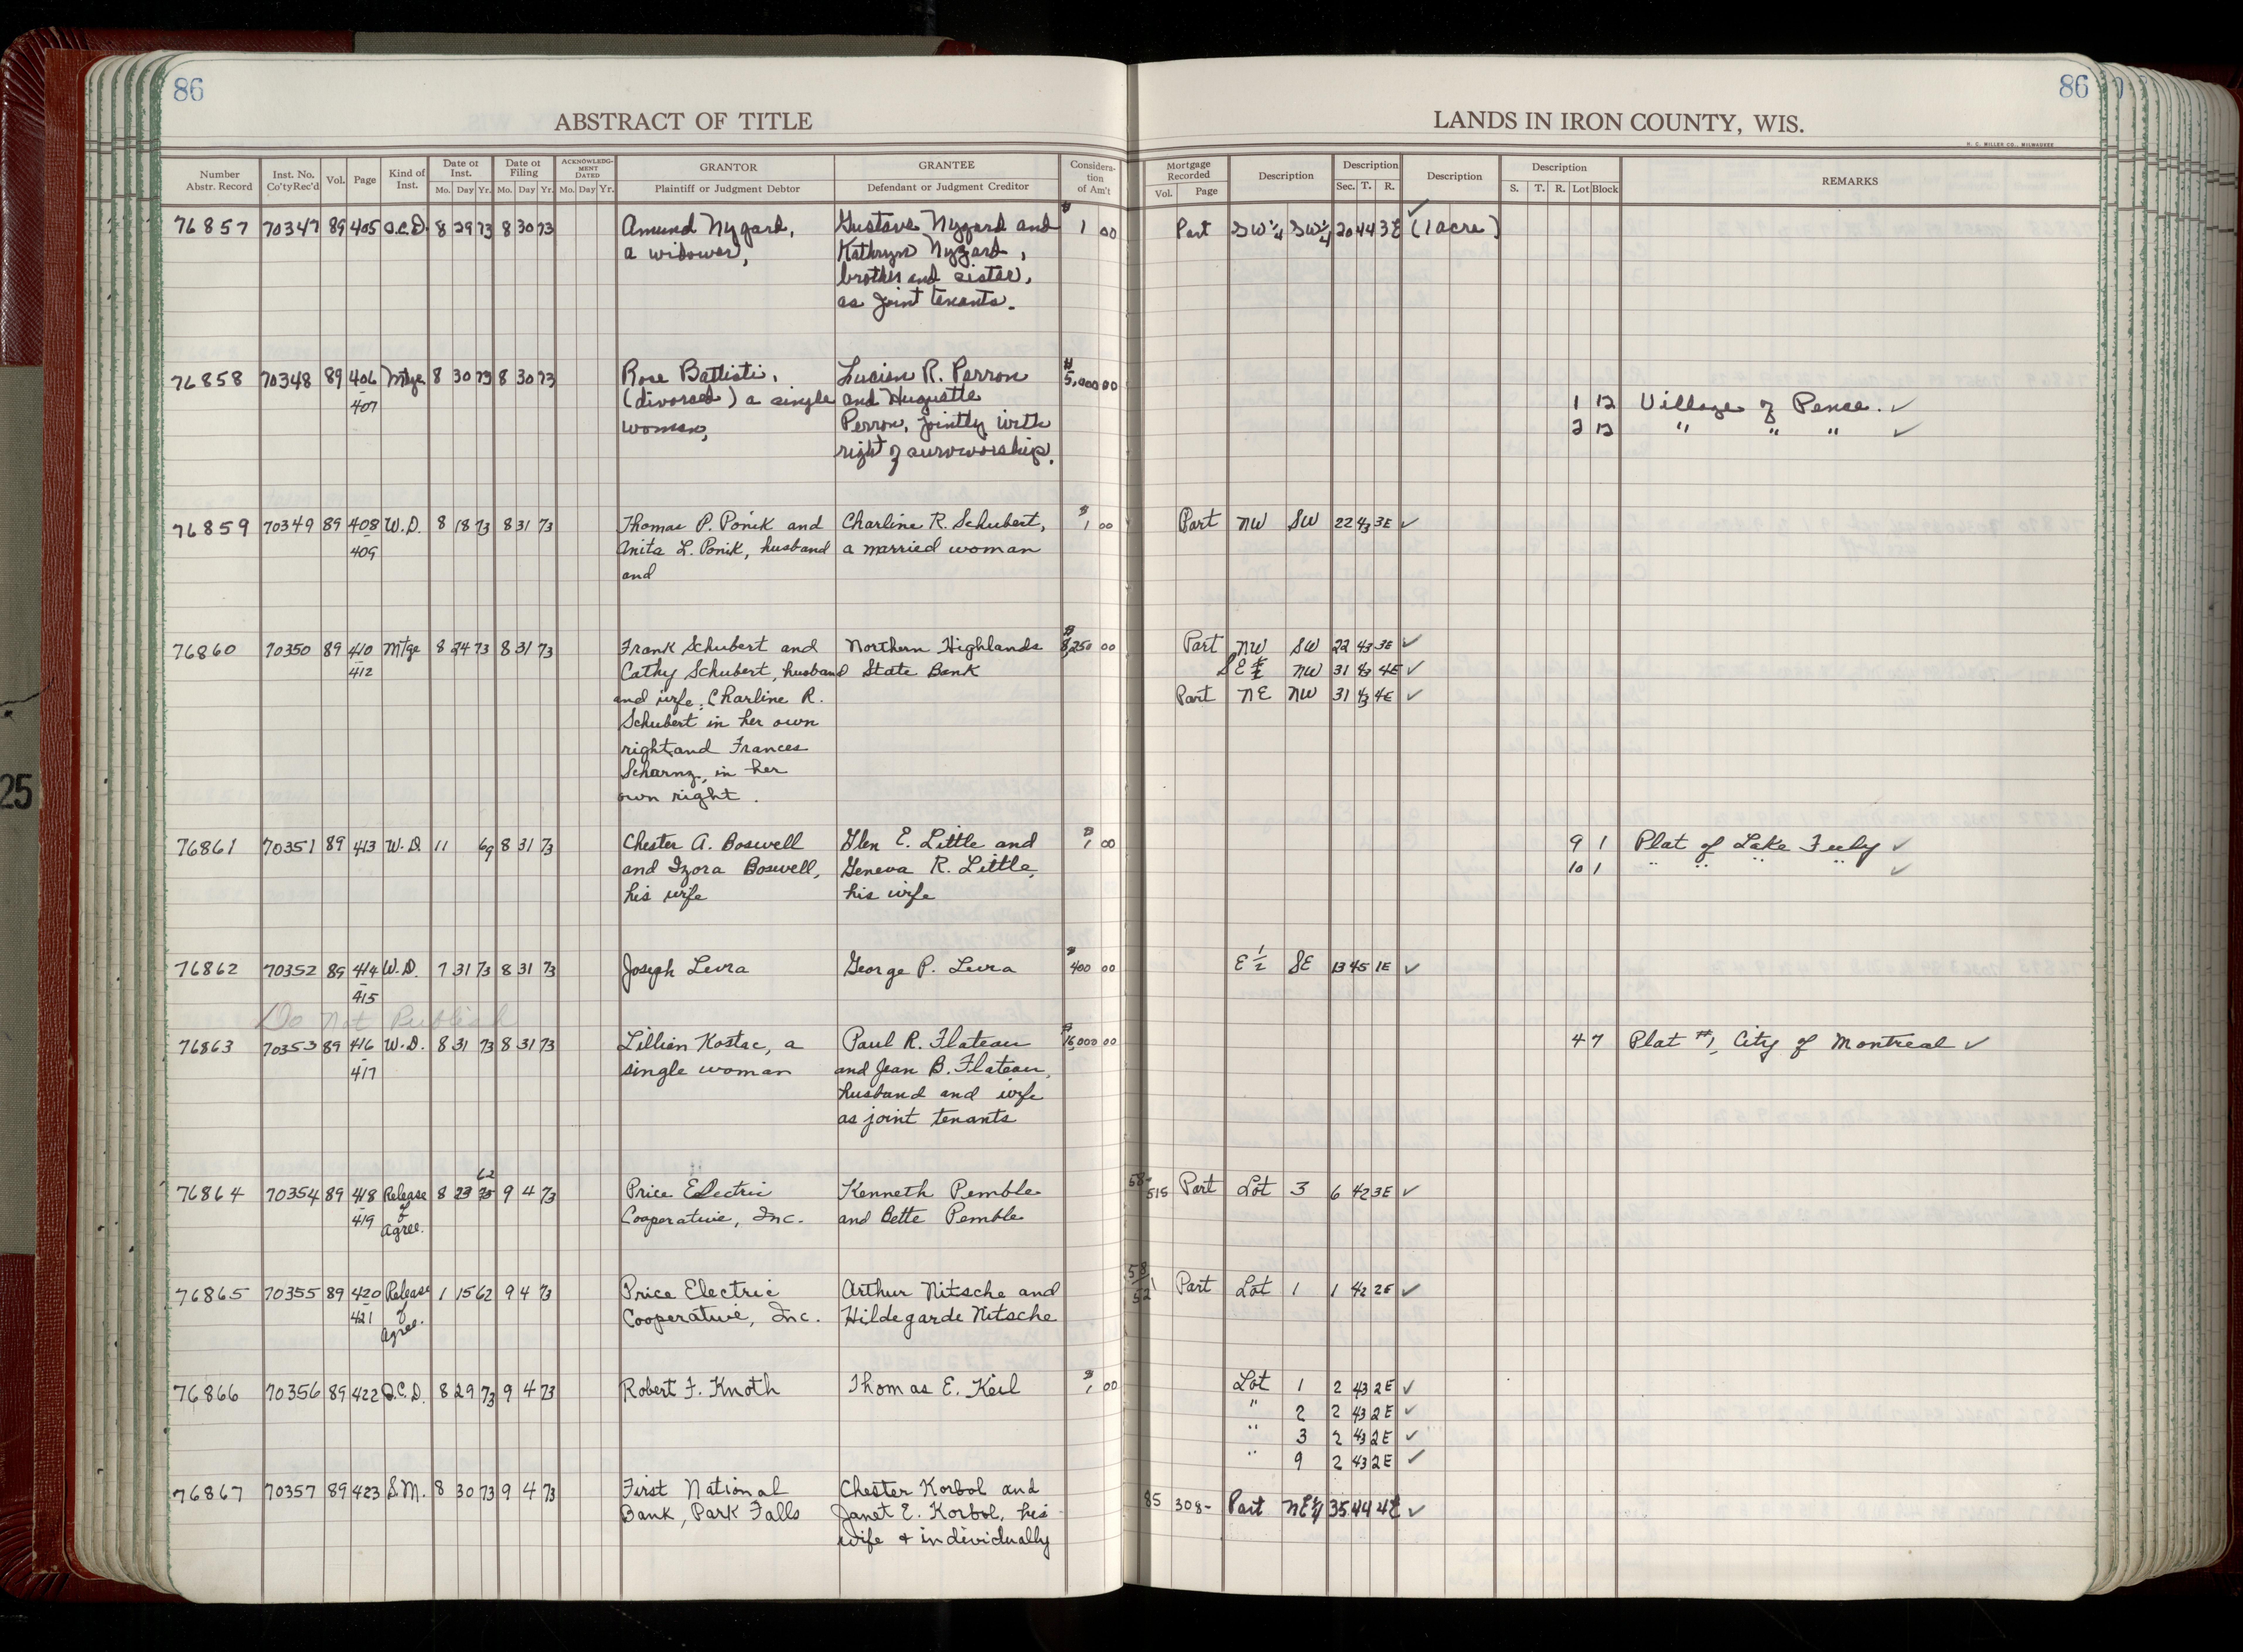 86
86
ABSTRACT OF TITLE
LANDS IN IRON COUNTY, WIS.
H. C. MILLER CO., MILWAUKEE
Number Abstr. Record Inst. No. Co'ty Rec'd Vol. Page Kind of Inst. Date of Inst. Mo. Day Yr. Date of Filing Mo. Day Yr. ACKNOWLEDGMENT DATED Mo. Day Yr. GRANTOR Plaintiff or Judgment Debtor GRANTEE Defendant or Judgment Creditor Consideration of Am't Mortgage Recorded Vol. Page Description Description Sec. T. R. Description Description S. T. R. Lot Block REMARKS
76857 70347 89 405 Q.C.D. 8 29 73 8 30 73 Amund Nygard, Gustave Nygard and $1 00 Part SW¼ SW¼ 20 44 3E ✓ (1 acre)
a widower, Kathryn Nygard,
brother and sister,
as joint tenants.
76858 70348 89 406 Mtge 8 30 73 8 30 73 Rose Battisti, Lucien R. Perron $5,000 00
- 407 (divorced) a single and Huguette 1 12 Village of Pence. ✓
woman, Perron, jointly with 2 12 " " " ✓
right of survivorship.
76859 70349 89 408 W.D. 8 18 73 8 31 73 Thomas P. Ponik and Charline R. Schubert, $1 00 Part NW SW 22 43 3E ✓
- 409 Anita L. Ponik, husband a married woman
and
76860 70350 89 410 Mtge 8 24 73 8 31 73 Frank Schubert and Northern Highlands $8,250 00 Part NW SW 22 43 3E ✓
- 412 Cathy Schubert, husband State Bank SE NW 31 43 4E ✓
and wife, Charline R. Part NE NW 31 43 4E ✓
Schubert in her own
right and Frances
in her
own right.
76861 70351 89 413 W.D 11 69 8 31 73 Chester A. Boswell Glen E. Little and $1 00 9 1 Plat of Lake ✓
and Izora Boswell, Geneva R. Little, 10 1 " " " " ✓
his wife his wife
76862 70352 89 414 W.D. 7 31 73 8 31 73 Joseph Leura George P. Leura $400 00 E½ SE 13 45 1E ✓
- 415
Do Not Publish
76863 70353 89 416 W.D. 8 31 73 8 31 73 Lillian Kostac, a Paul R. Flateau $16,000 00 4 7 Plat #1, City of Montreal ✓
- 417 single woman and Jean B. Flateau,
husband and wife
as joint tenants
62
76864 70354 89 418 Release 8 23 73 9 4 73 Price Electric Kenneth Pemble 58- 515 Part Lot 3 6 42 3E ✓
- 419 of Agree. Cooperative, Inc. and Bette Pemble
76865 70355 89 420 Release 1 15 62 9 4 73 Price Electric Arthur Nitsche and 58 521 Part Lot 1 1 42 2E ✓
- 421 of Agree. Cooperative, Inc. Hildegarde Nitsche
76866 70356 89 422 Q.C.D. 8 29 73 9 4 73 Robert F. Knoth Thomas E. Keil $1 00 Lot 1 2 43 2E ✓
" 2 2 43 2E ✓
" 3 2 43 2E ✓
" 9 2 43 2E ✓
76867 70357 89 423 S.M. 8 30 73 9 4 73 First National Chester Korbol and 85 308- Part NE¼ 35 44 4E ✓
Bank, Park Falls Janet E. Korbol, his
wife + individually
25